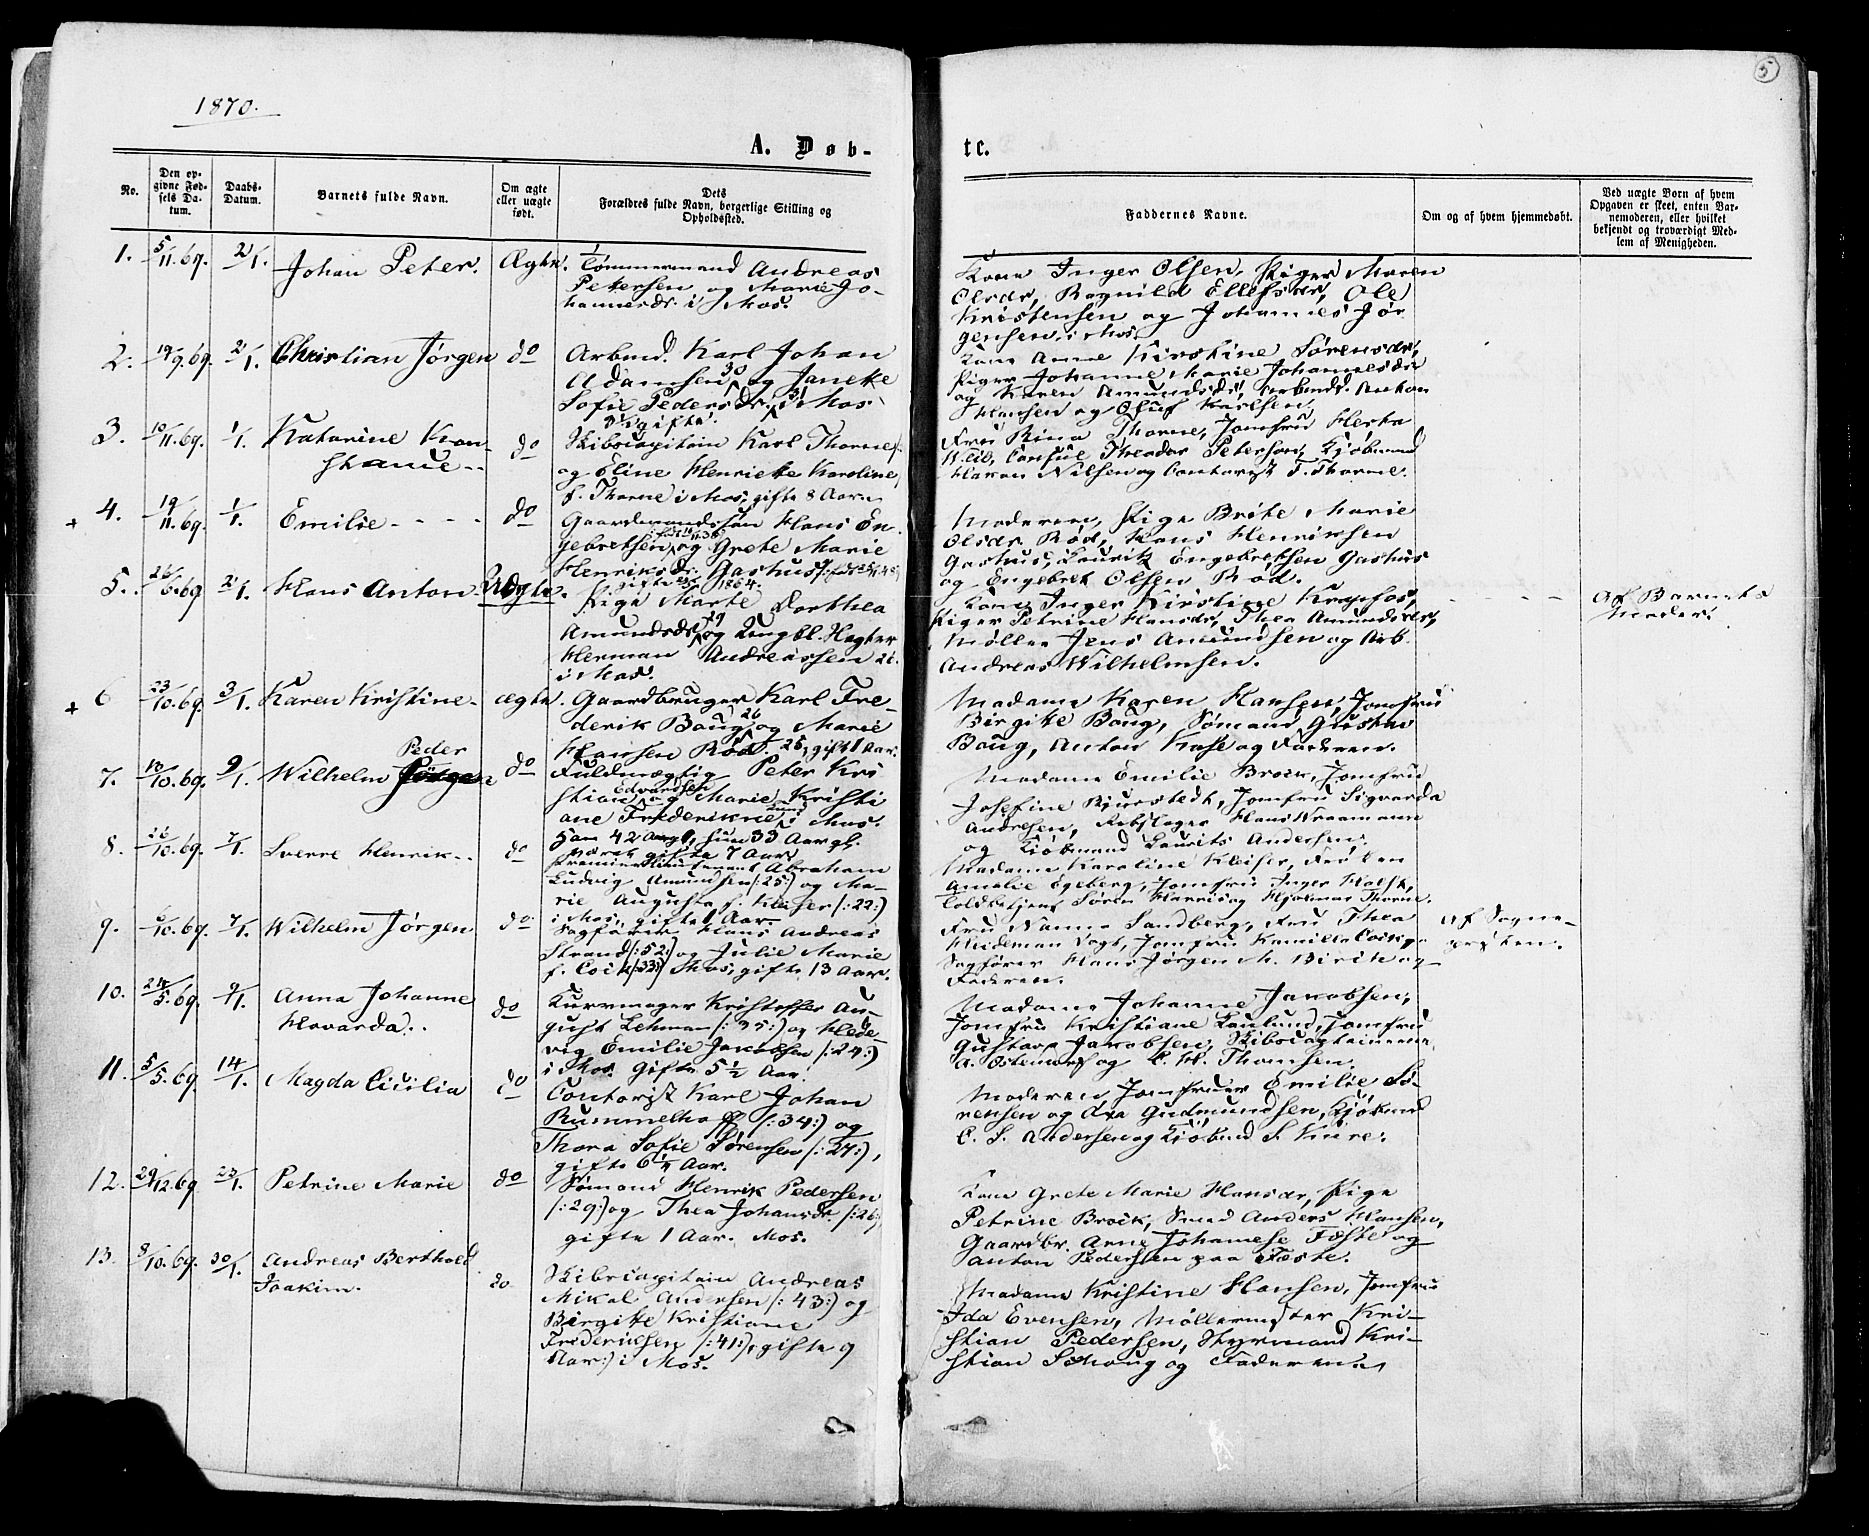 5
1870.
A. Døb-
tc.
No.
Den op-
givne Fød-
sels Da-
tum.
Daabs-
Datum.
Barnets fulde Navn.
Om ægte
eller uægte
født.
Dets
Forældres fulde Navn, borgerlige Stilling og
Opholdssted.
Faddernes Navne.
Om og af hvem hjemmedøbt.
Ved uægte Børn af hvem
Opgaven er skeet, enten Bar-
nemoderen, eller hvilket
bekjendt og troværdigt Med-
lem af Menigheden.
1. 5/11.69. 2/1. Johan Peter. Ægte.
Tømmermand Andreas
Petersen og Marie Jo-
hannesdr. i Mos.
Kone Inger Olsen, Piger Maren
Olsdr, Ragnild Ellefsdr, Ole
Kristensen og Johannes Jør
gensen i Mos.
2. 19/9.69. 2/1. Christian Jørgen do
Arbmd. Karl Johan
Adamsen 30 og Janeke
Sofie Pedersdr. 31 i Mos.
gifte.
Kone Anne Kirstine Sørensdr,
Piger Johanne Marie Johannesdr
og Karen Amundsdr, Arbmd. Anton
Hansen og Oluf Karlsen.
3. 10/11.69. 1/1. Katarine Kon-
stance.. do
Skibscapitain Karl Thorne
og Eline Henriette Karoline
f. Thorne i Mos, gifte 8 Aar.
Fru Rina Thorne, Jomfru Herta
Consul Theodor Peterson, Kjøbmand
Haren Nilsen og Contorist F. Thorne.
+ 4. 19/11.69. 1/1. Emilie - - - - do
Gaardmandssøn Hans En-
gebretsen og Grete Marie
Henriksdr. Gashus
gifte 1864.
Moderen, Pige Brite Marie
Olsdr. Rød, Hans Henriksen
Gashus, Laurits Engebretsen Gashus
og Engebret Olsen Rød.
5. 26/6.69 2/1. Hans Anton Uægte.
Pige Marte Dorthea
Amundsdr 29 og Ungkl. Hagter
Herman Andreassen 26.
i Mos.
Kone Inger Kirstine Krapfos,
Piger Petrine Hansdr, Thea Amundsdr,
Møller Jens Amundsen og Arb.
Andreas Wilhelmsen.
- - - -
Af Barnets
Moder.
+ 6 23/10.69. 3/1. Karen Kristine. ægte.
Gaardbruger Karl Fre-
derik Boug 26 og Marie
Hansen Rød. 25, gift 1 Aar.
Madame Karen Hansen, Jomfru
Birgitte Boug, Sømand Gustav
Boug, Anton Kase og Faderen.
7. 13/10.69. 9/1. Wilhelm Peder do
Fuldmægtig Peter Kri
stian Edvardsen og Marie Kristi
ane Frederikke Lund i Mos.
Han 42 Aar gl., hun 33 Aar gl.
gifte 7 Aar.
Madame Emilie Brock, Jomfru
Josefine Bjurstedt, Jomfru Sigvarda
Andresen, Rebslager Hans Wraamann
og Kjøbmand Laurits Andersen.
8. 26/10.69. 7/1. Sverre Henrik.. do
Premierlieutenant Abraham
Ludvig Amundsen (:25:) og Ma-
rie Augusta f. Kleiser (:22:)
i Mos, gifte 1 Aar.
Madame Karoline Kleiser, Frøken
Amalie Egeberg, Jomfru Inger Holst,
Toldbetjent Søren Harris og Hjalmar Thorne.
9. 6/10.69. 7/1. Wilhelm Jørgen do.
Sagfører Hans Andreas
Strand (:52:) og Julie Marie
f. Coik (:33:) Mos, gifte 13 Aar.
Fru Nanna Sandberg, Fru Thea
Heideman Vogt, Jomfru Kamilla Coik,
Sagfører Hans Jørgen M. Birch og
Faderen.
Af Sogne-
præsten.
10. 24/5.69. 9/1. Anna Johanne
Hovarda.. do
Kurvmager Kristoffer Au-
gust Lehman (:35:) og Hede-
vig Emilie Jakobsen (:24:)
i Mos. gifte 5 1/2 Aar.
Madame Johanne Jakobsen,
Jomfru Kristiane Kaulund, Jomfru
Gustava Jakobsen, Skibscaptainerne
A. Ostenorf og C. H. Thomsen.
11. 5/5.69 14/1. Magda Cicilia do
Contorist Karl Johan
Rummelhoff (:34:) og
Thora Sofie Sørensen (:27:),
gifte 6 1/4 Aar.
Moderen Jomfruer Emilie Sø-
rensen og Ida Gudmundsen, Kjøbmd
C. S. Andersen og Kjøbmd S. Kure.
12. 29/12.69 23/1. Petrine Marie do
Sømand Henrik Pedersen
(:29:) og Thea Johansdr. (:26:),
gifte 1 Aar. Mos.
Kone Grete Marie Hansdr, Pige
Petrine Brock, Smed Anders Hansen,
Gaardbr. Arne Johannese Feste og
Anton Pedersen paa Feste.
13. 8/10.69. 30/1. Andreas Berthold
Joakim. do
Skibscapitain Andreas
Mikal Andersen (:43:) og
Birgitte Kristiane
Frederiksen (:41:), gifte 9
Aar:) i Mos.
Madame Kristine Hansen, Jomfru
Ida Evensen, Møllermester Kri-
stian Pedersen, Styrmand Kri-
stian Schoug og Faderen.